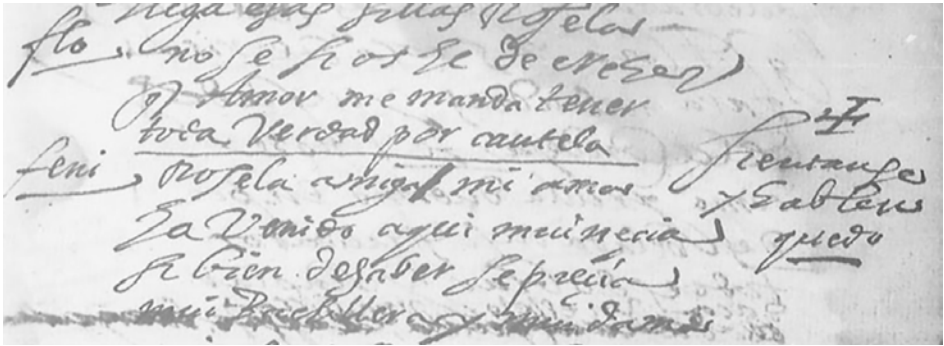 llega esas sillas Rosela
flo. no se si os he de creher
q Amor me manda tener
toda Verdad por cautela
feni Rosela amiga mi ama
ha Venido aqui mui necia
si bien de saber se precia
mui Bachillera y mui dama
sientanse
y hablen
quedo